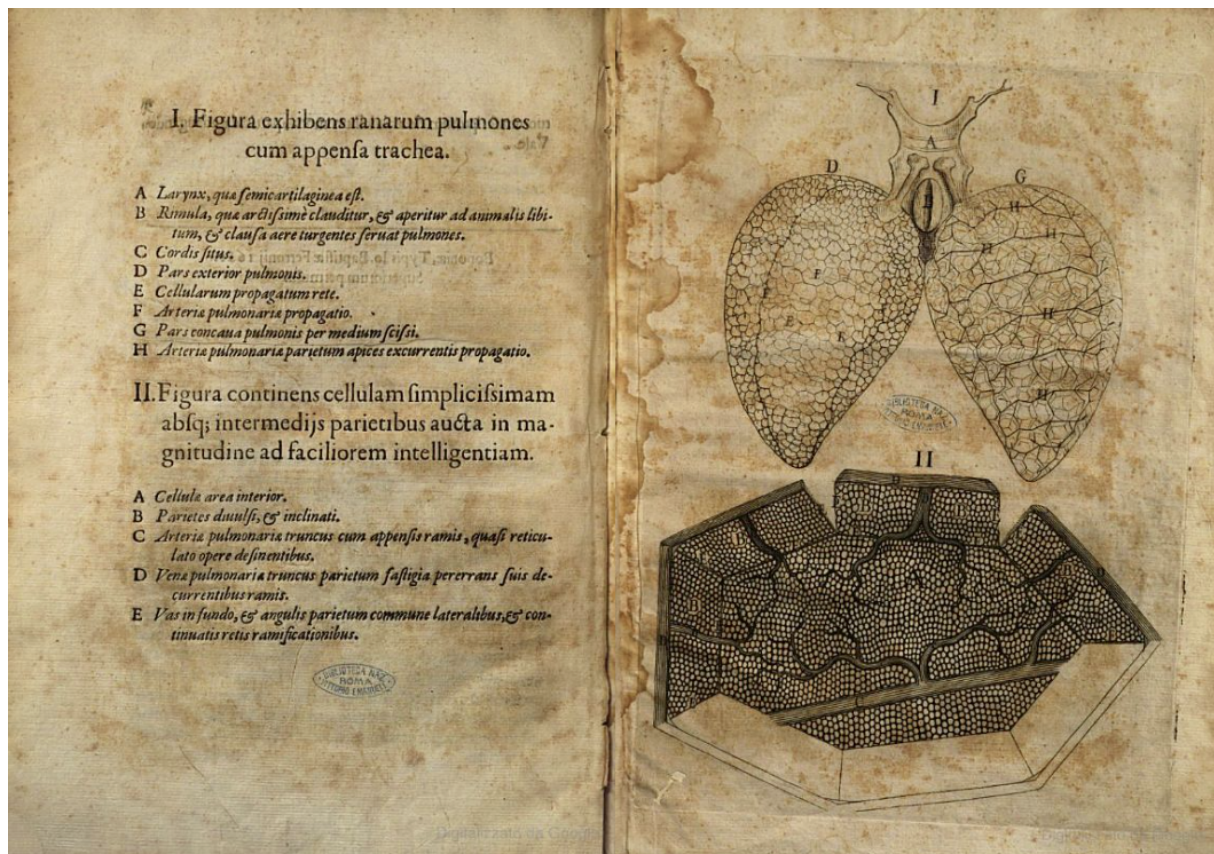 I. Figura exhibens ranarum pulmones
cum appenſa trachea.
A Larynx, quæ ſemicartilaginea eſt.
B Rimula, quæ arctiſsimè clauditur, & aperitur ad animalis libi-
tum, & clauſa aere turgentes ſeruat pulmones.
C Cordis ſitus.
D Pars exterior pulmonis.
E Cellularum propagatum rete.
F Arteriæ pulmonariæ propagatio.
G Pars concaua pulmonis per medium ſciſsi.
H Arteriæ pulmonariæ parietum apices excurrentis propagatio.
II. Figura continens cellulam ſimpliciſsimam
abſq; intermedijs parietibus aucta in ma-
gnitudine ad faciliorem intelligentiam.
A Cellulæ area interior.
B Parietes diuulſi, & inclinati.
C Arteriæ pulmonariæ truncus cum appenſis ramis, quaſi reticu-
lato opere deſinentibus.
D Venæ pulmonariæ truncus parietum faſtigia pererrans ſuis de-
currentibus ramis.
E Vas in fundo, & angulis parietum commune lateralibus, & con-
tinuatis retis ramificationibus.
BIBLIOTECA NAZ.
ROMA
VITTORIO EMANUELE
I
A
D
G
B
H
H
H
F
E
E
H
H
BIBLIOTECA NAZ.
ROMA
VITTORIO EMANUELE
II
D